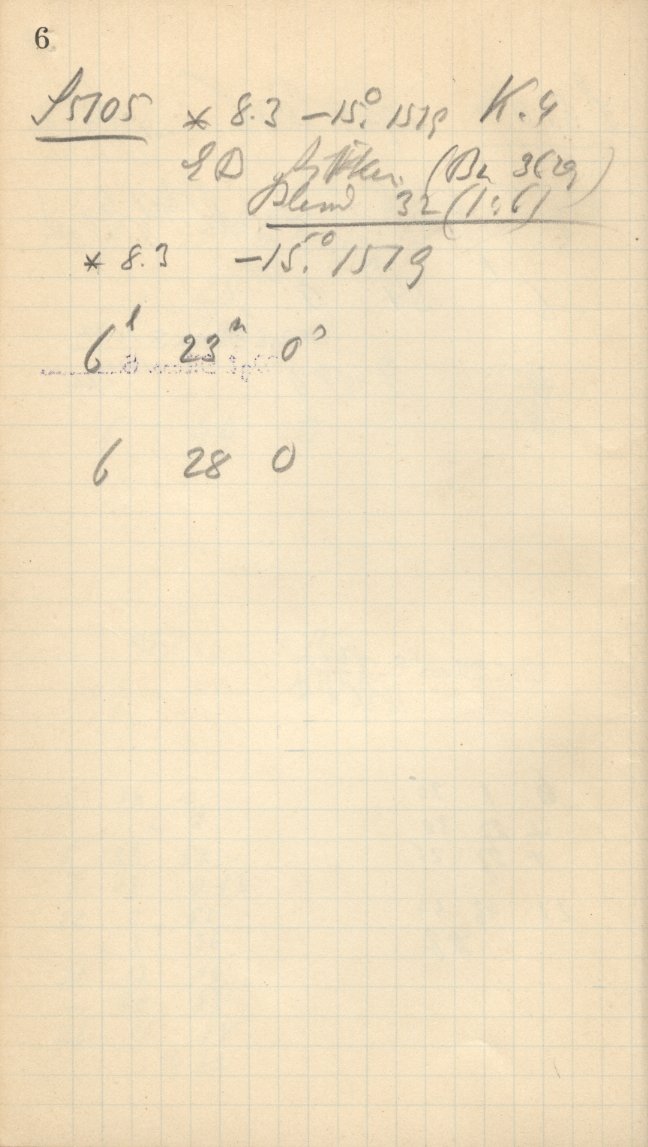 6
S5705 * 8.3 -15.° 1579 K.4
ED (Br 3629)
Blend 32 (1:6)
* 8.3 -15.° 1579
6h 23m 0s
6 28 0